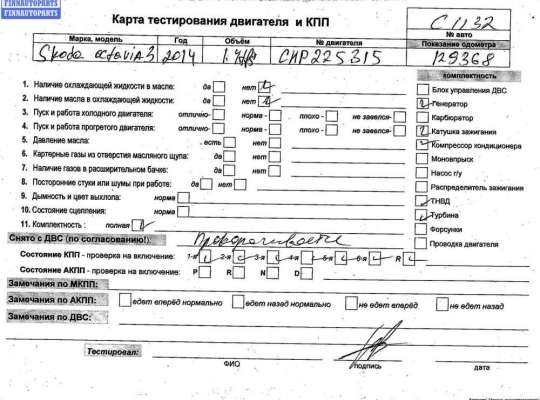 FINNAUTOPARTS
FINNAUTOPARTS
Карта тестирования двигателя и КПП
C 1132
№ авто
Марка, модель Год Объём № двигателя Показание одометра
Skoda octaviA3 2014 CHP225315 129368
комплектность
1. Наличие охлаждающей жидкости в масле: да нет
2. Наличие масла в охлаждающей жидкости: да нет
3. Пуск и работа холодного двигателя: отлично- норма - плохо - не завелся-
4. Пуск и работа прогретого двигателя: отлично- норма - плохо - не завелся-
5. Давление масла: есть нет
6. Картерные газы из отверстия масляного щупа: да нет
7. Наличие газов в расширительном бачке: да нет
8. Посторонние стуки или шумы при работе: да нет
9. Дымность и цвет выхлопа: норма
10. Состояние сцепления: норма
11. Комплектность : полная
Блок управления ДВС
Генератор
Карбюратор
Катушка зажигания
Компрессор кондиционера
Моновпрыск
Насос г/у
Распределитель зажигания
ТНВД
Турбина
Форсунки
Проводка двигателя
Снято с ДВС (по согласованию!):
Состояние КПП - проверка на включение: 1-я 2-я 3-я 4-я 5-я 6-я R
Состояние АКПП - проверка на включение: P R N D
Замечания по МКПП:
Замечания по АКПП: едет вперёд нормально едет назад нормально не едет вперёд не едет назад
Замечания по ДВС:
Тестировал:
ФИО подпись дата